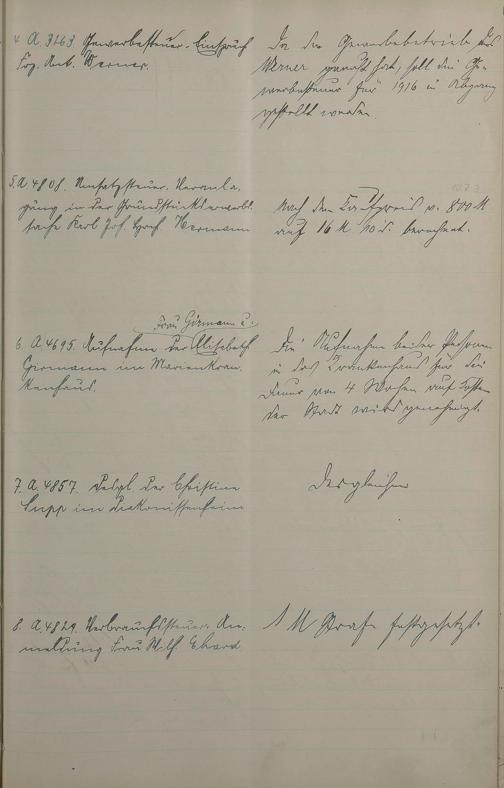 4. A. 3163. Gewerbesteuer-Einspruch
Frz. Ant. Werner.
Da der Gewerbebetrieb des
Werner geruht hat, soll die Ge-
werbesteuer für 1916 in Abgang
gestellt werden.
5. A 4808. Umsatzsteuer-Veranla-
gung in der Grundstückserwerbs-
sache Karl Jos. Hermann
Nach dem Kaufpreis v. 800 M
auf 16 M berechnet.
Frau Girmann u.
6. A 4695. Aufnahme der Elisabeth
Girmann im Marienkran-
kenhaus.
Die Aufnahme beider Personen
in das Krankenhaus für die
Dauer von 4 Wochen auf Kosten
der Stadt wird genehmigt.
7. A. 4857. Desgl. der Christine
Supp im Diakonissenheim
Desgleichen
8. A. 4829. Verbrauchssteuer-An-
meldung Frau Wilh. Ehard
1 M Strafe festgesetzt.